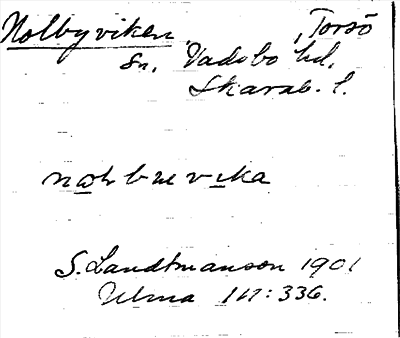 Nolbyviken, Torsö
sn, Vadsbo hd,
Skarab. l.
S. Landtmanson 1901
Ulma 117:336.